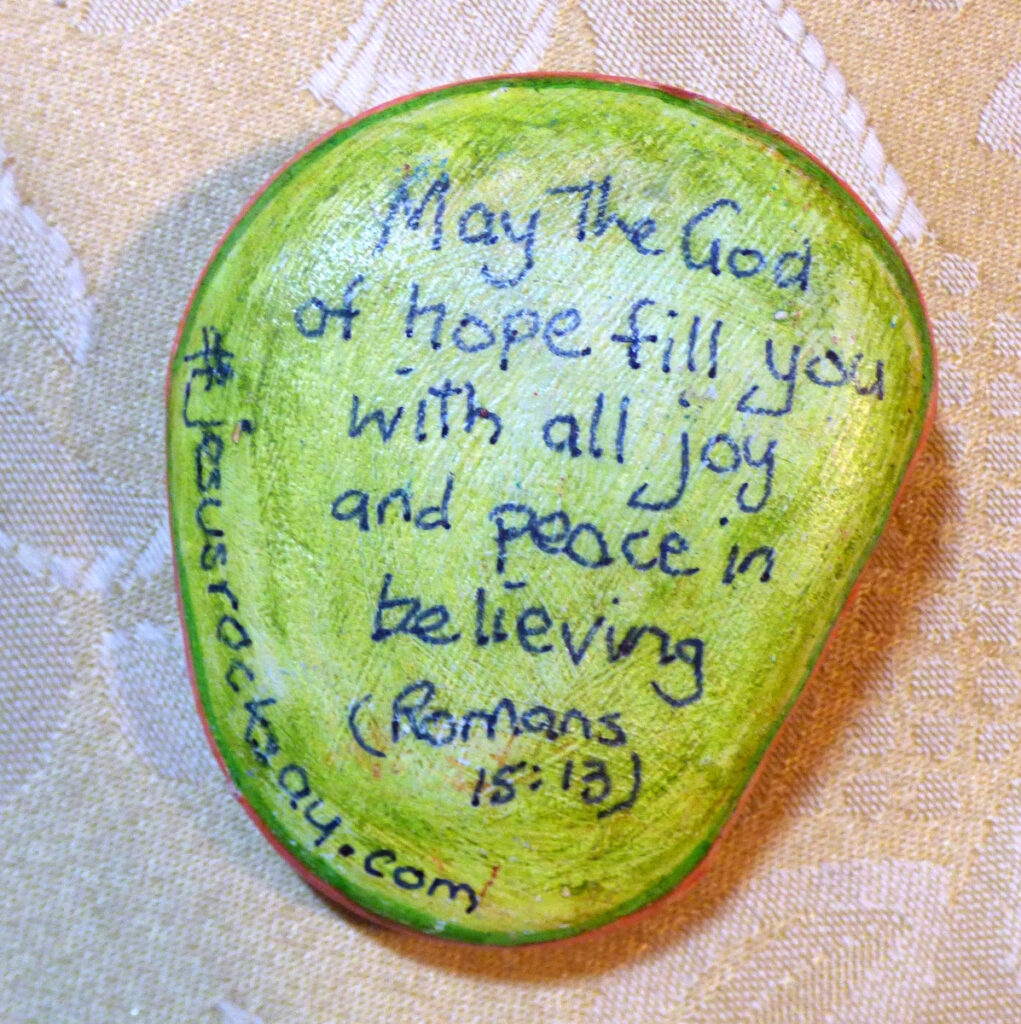 May The God
of hope fill you
with all joy
and peace in
believing
(Romans
15:13)
#jesusrocksay.com